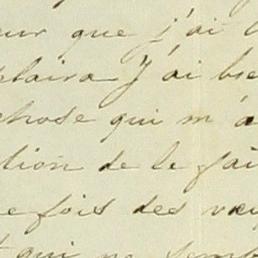 que j'ai
plaira J'ai bie
chose qui m'a
tion de le fai
efois des vœu
qui ne semb